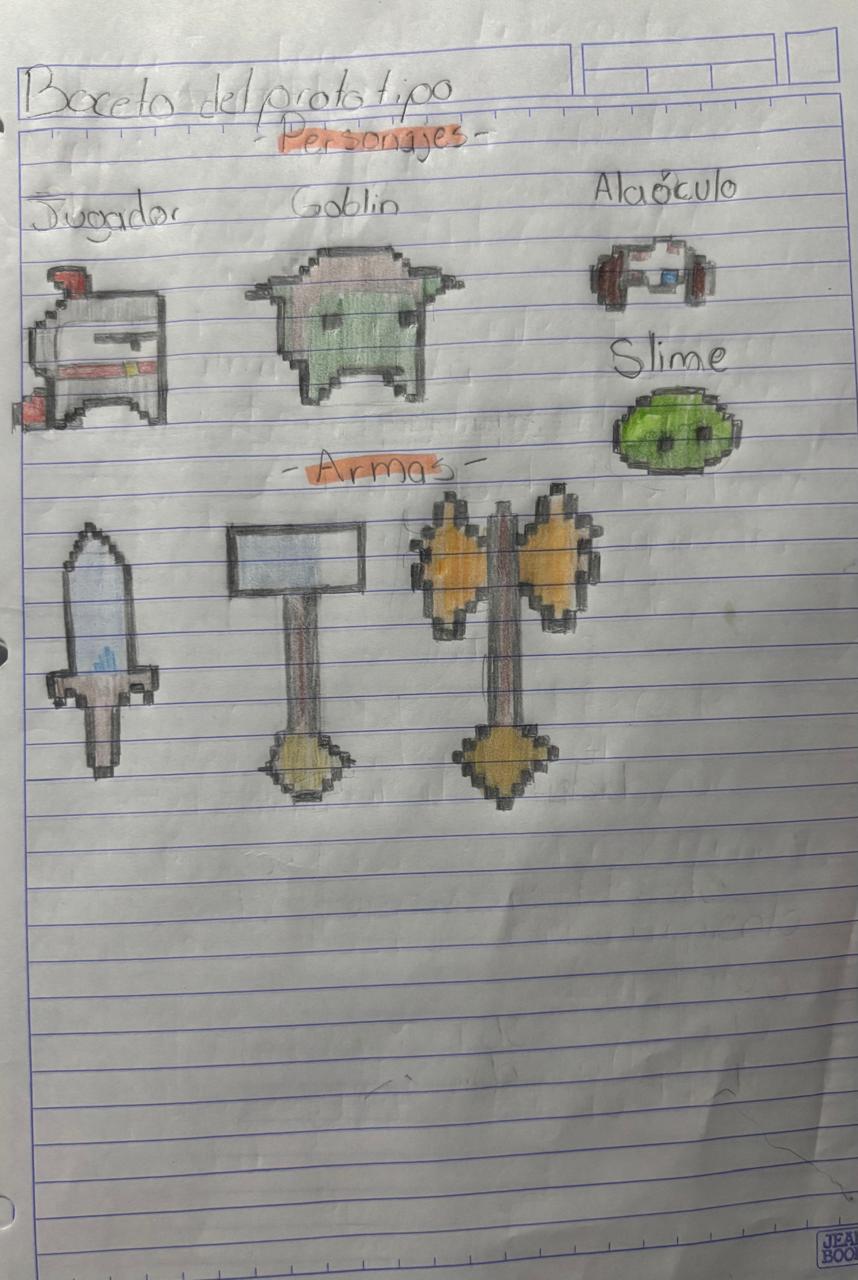 Boceto del prototipo
- Personajes -
Jugador
Goblin
Alaóculo
Slime
- Armas -
JEA
BOO